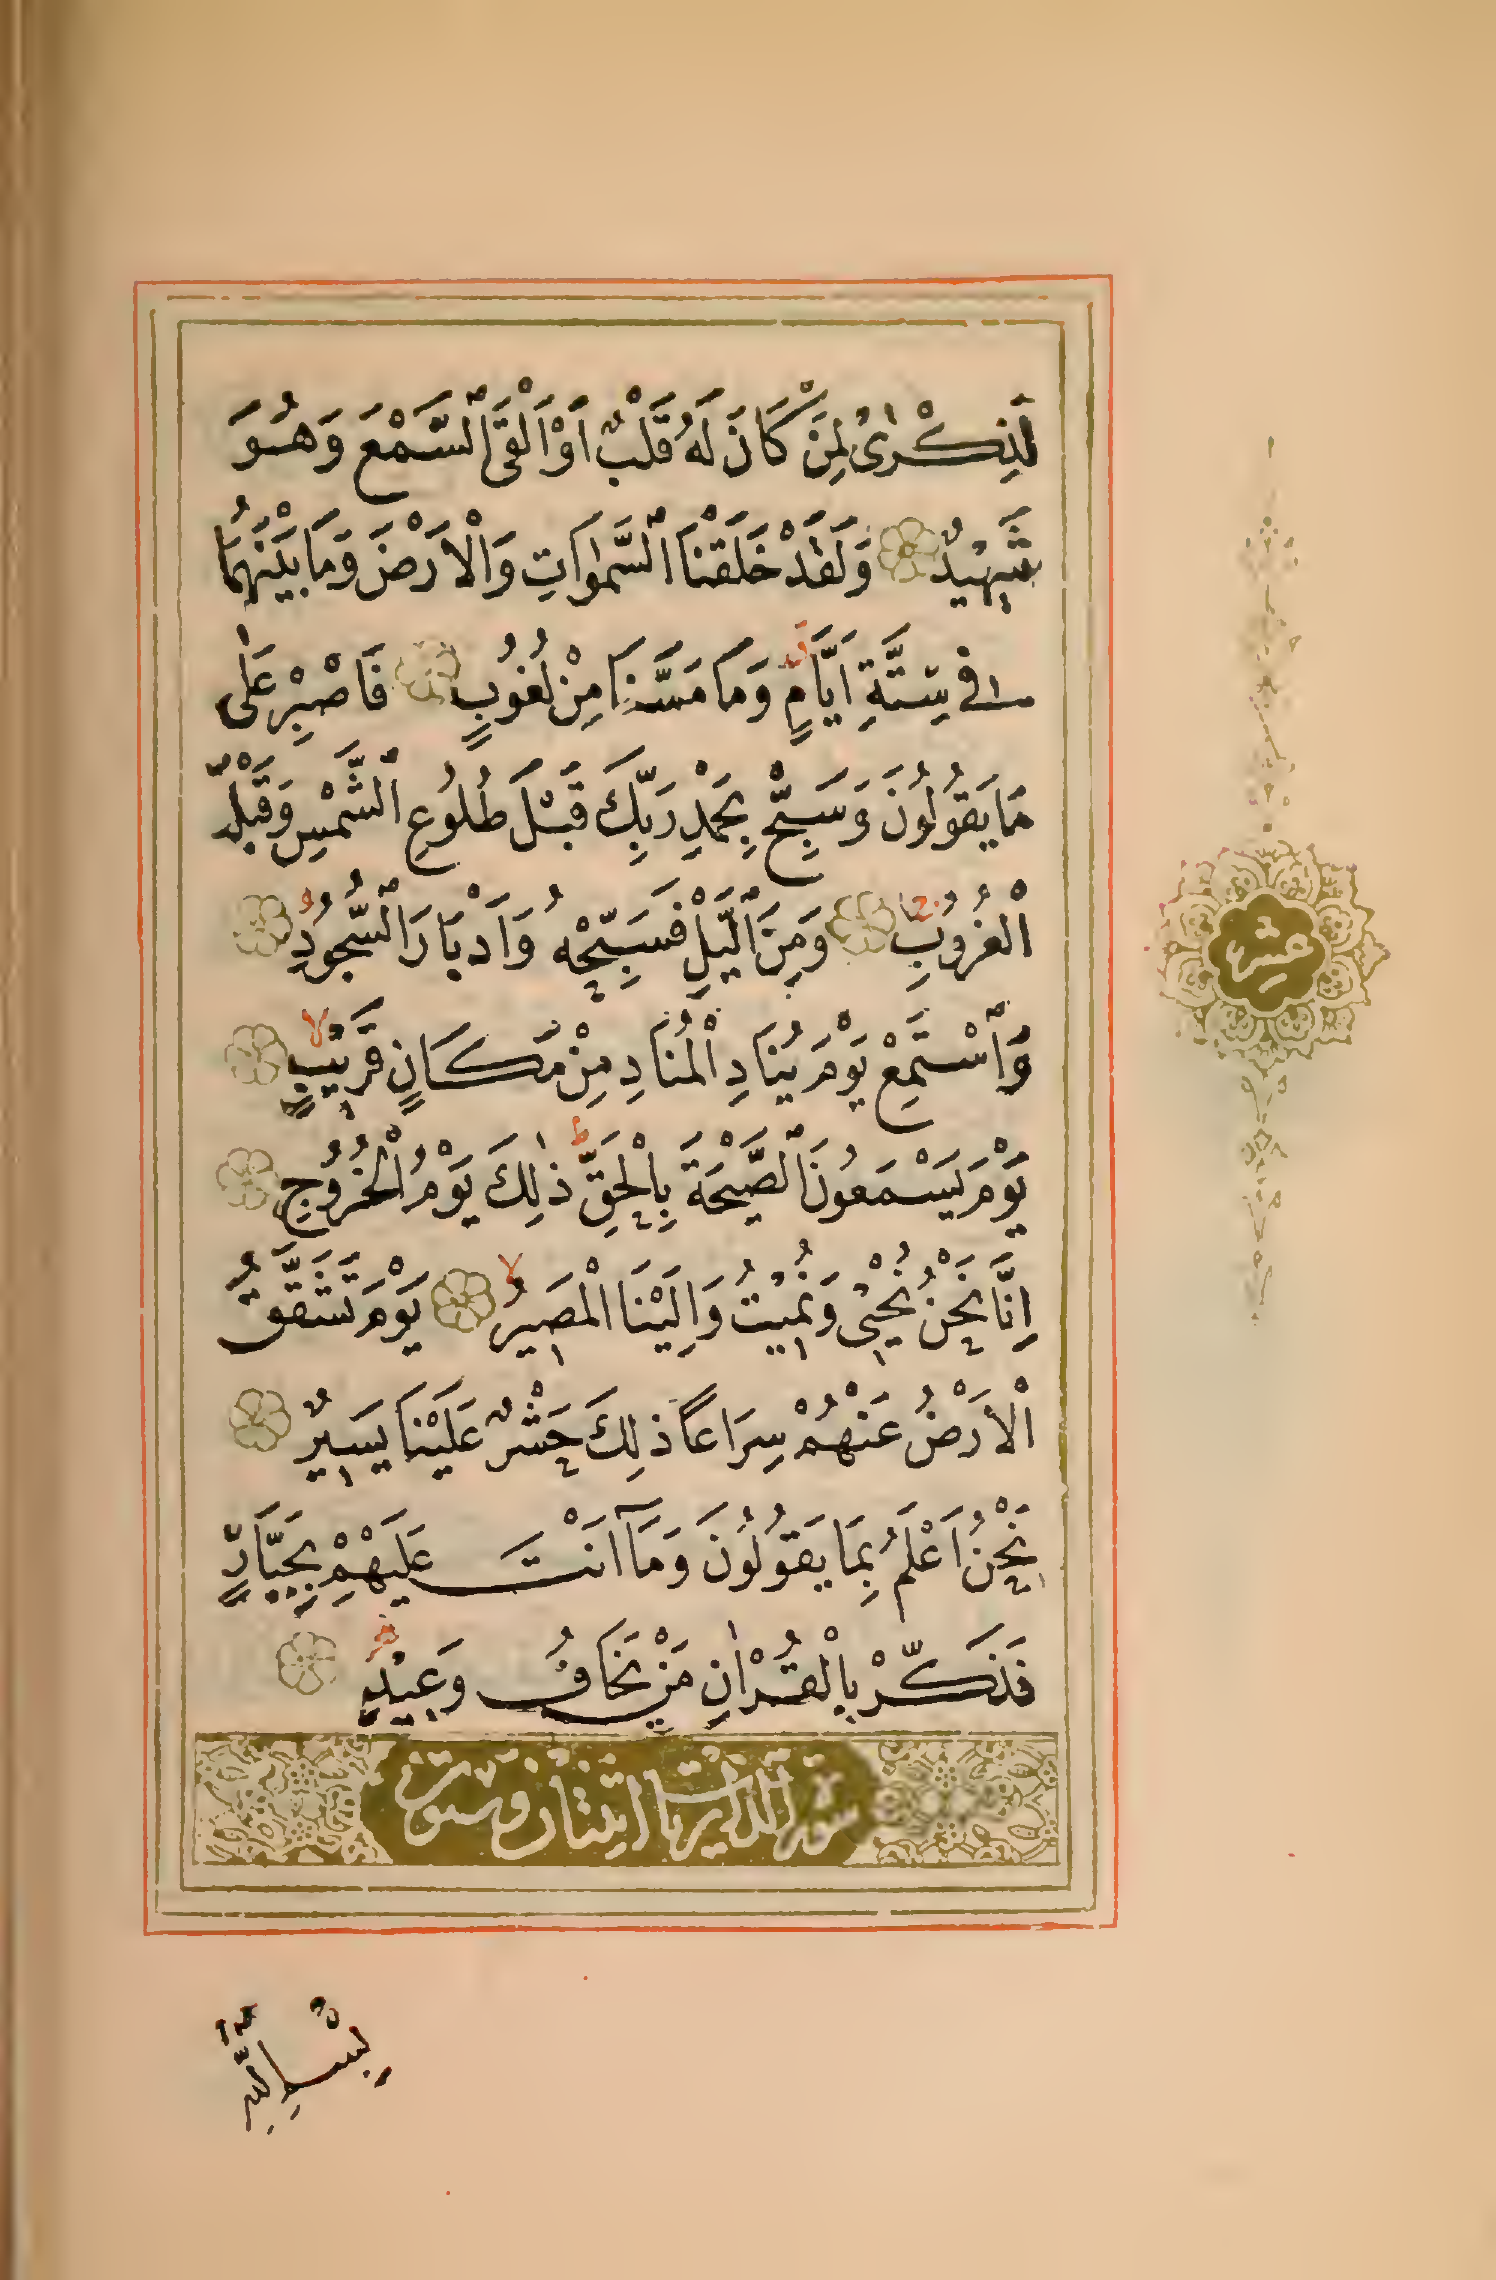 لَذِكْرٰى لِمَنْ كَانَ لَهُ قَلْبٌ اَوْ اَلْقَى السَّمْعَ وَهُوَ
شَهِيْدٌ وَلَقَدْ خَلَقْنَا السَّمٰوَاتِ وَالْاَرْضَ وَمَا بَيْنَهُمَا
فِي سِتَّةِ اَيَّامٍ وَمَا مَسَّنَا مِنْ لُغُوبٍ فَاصْبِرْ عَلٰى
مَا يَقُولُونَ وَسَبِّحْ بِحَمْدِ رَبِّكَ قَبْلَ طُلُوعِ الشَّمْسِ وَقَبْلَ
الْغُرُوبِ وَمِنَ الَّيْلِ فَسَبِّحْهُ وَاَدْبَارَ السُّجُودِ
وَاسْتَمِعْ يَوْمَ يُنَادِ الْمُنَادِ مِنْ مَكَانٍ قَرِيْبٍ
يَوْمَ يَسْمَعُونَ الصَّيْحَةَ بِالْحَقِّ ذٰلِكَ يَوْمُ الْخُرُوجِ
اِنَّا نَحْنُ نُحْيٖ وَنُمِيْتُ وَاِلَيْنَا الْمَصِيرُ يَوْمَ تَشَقَّقُ
الْاَرْضُ عَنْهُمْ سِرَاعًا ذٰلِكَ حَشْرٌ عَلَيْنَا يَسِيرٌ
نَحْنُ اَعْلَمُ بِمَا يَقُولُونَ وَمَآ اَنْتَ عَلَيْهِمْ بِجَبَّارٍ
فَذَكِّرْ بِالْقُرْاٰنِ مَنْ يَخَافُ وَعِيْدِ
سورة الذاريات اثنتان وستون
عشر
بِسْمِ اللّٰهِ